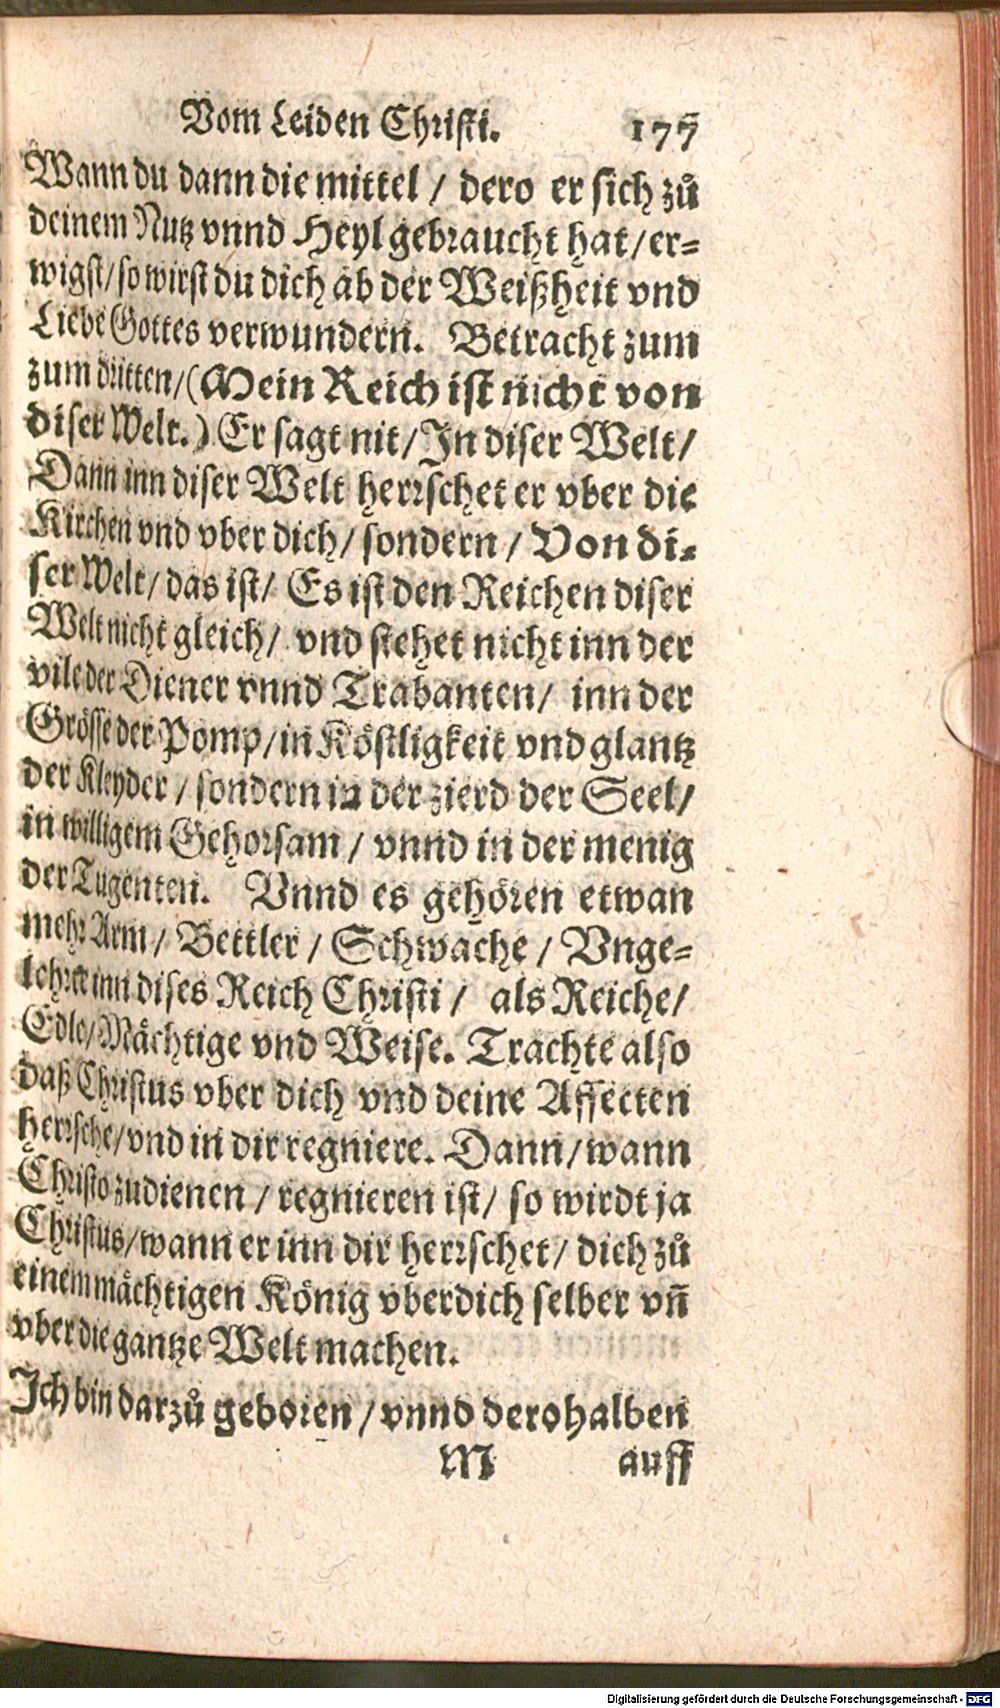 Vom Leiden Christi. 177
Wann du dann die mittel / dero er sich zů
deinem Nutz vnnd Heyl gebraucht hat / er-
wigst / so wirst du dich ab der Weißheit vnd
Liebe Gottes verwundern. Betracht zum
zum dritten / (Mein Reich ist nicht von
diser Welt.) Er sagt nit / In diser Welt /
Dann inn diser Welt herrschet er vber die
Kirchen vnd vber dich / sondern / Von di-
ser Welt / das ist / Es ist den Reichen diser
Welt nicht gleich / vnd stehet nicht inn der
vile der Diener vnnd Trabanten / inn der
Grösse der Pomp / in Köstligkeit vnd glantz
der Kleyder / sondern in der zierd der Seel /
in willigem Gehorsam / vnnd in der menig
der Tugenten. Vnnd es gehören etwan
mehr Arm / Bettler / Schwache / Vnge-
lehrte inn dises Reich Christi / als Reiche /
Edle / Mächtige vnd Weise. Trachte also
daß Christus vber dich vnd deine Affecten
herrsche / vnd in dir regniere. Dann / wann
Christo zudienen / regnieren ist / so wirdt ja
Christus / wann er inn dir herrschet / dich zů
einem mächtigen König vber dich selber vñ
vber die gantze Welt machen.
Ich bin darzů geboren / vnnd derohalben
M auff
Digitalisierung gefördert durch die Deutsche Forschungsgemeinschaft - DFG